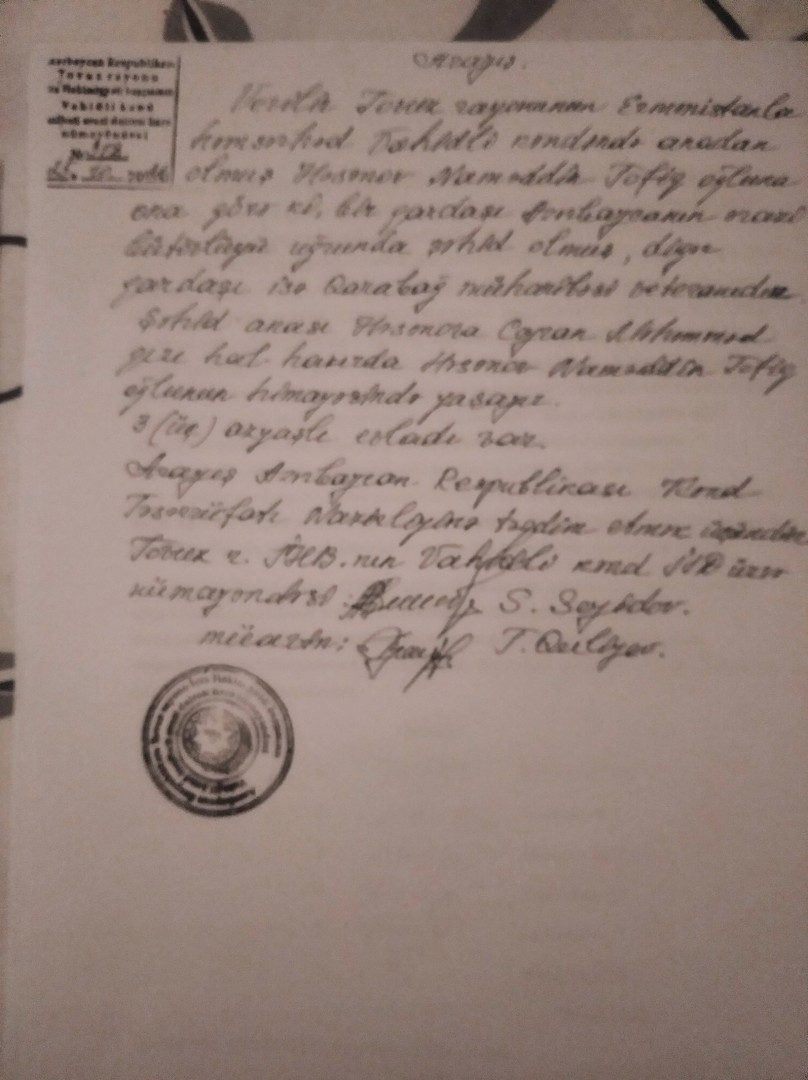 Azərbaycan Respublikası
Tovuz rayonu
İcra Hakimiyyəti başçısının
Vahidli kənd
inzibati ərazi dairəsi üzrə
nümayəndəsi
№
Arayış.
Verilir Tovuz rayonunun Ermənistanla
həmsərhəd Vəhidli kəndində anadan
olmuş Həsənov Naməddin Tofiq oğluna
ona görə ki, bir qardaşı Azərbaycanın ərazi
bütövlüyü uğrunda şəhid olmuş, digər
qardaşı isə Qarabağ müharibəsi veteranıdır.
Şəhid anası Həsənova Ceyran Məhəmməd
qızı hal-hazırda Həsənov Naməddin Tofiq
oğlunun himayəsində yaşayır.
3 (üç) azyaşlı övladı var.
Arayış Azərbaycan Respublikası Kənd
Təsərrüfatı Nazirliyinə təqdim etmək üçündür.
Tovuz r. İHB.nın Vahidli kənd İƏD üzrə
nümayəndəsi: S. Seyidov.
mütəxəssis: T. Quliyev.